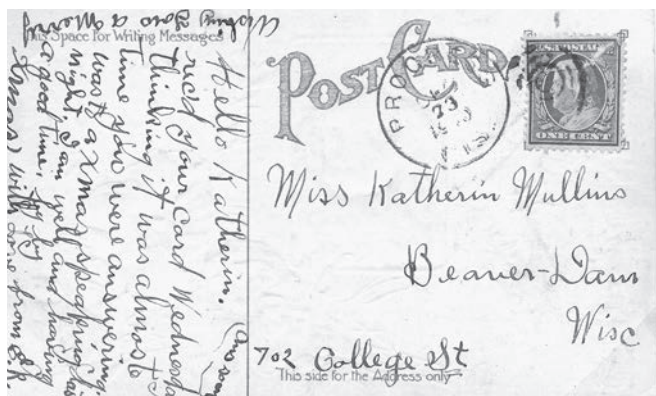 Wishing you a Merry
This Space for Writing Messages
Hello Katherin.
rec'd your card Wednesday
thinking it was almost
time you were answering.
was to a xmas speaking las
night, I am well and having
a good time, by by
Xmas) with some from
POST CARD
PRO
23
U.S. POSTAGE
ONE CENT
Miss Katherin Mullins
Beaver-Dam
Wisc
702 College St
This side for the Address only